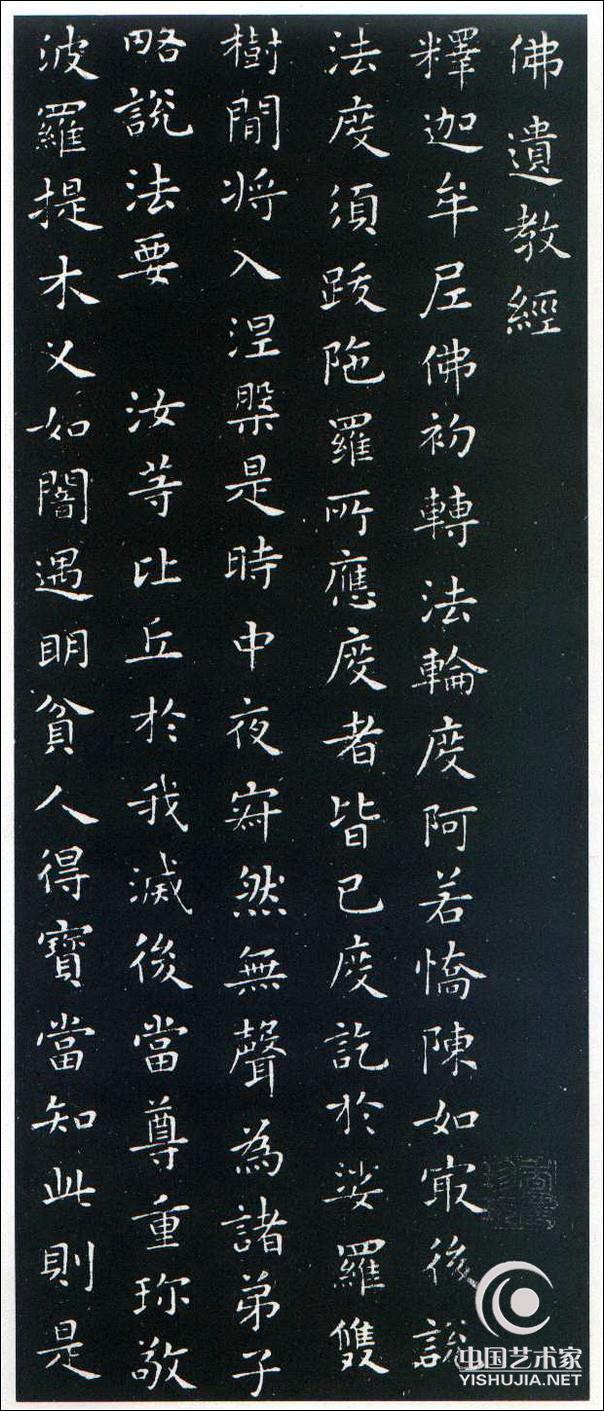 佛遺教經
釋迦牟尼佛初轉法輪度阿若憍陳如寂後說
法度須跋陁羅所應度者皆已度訖於娑羅雙
樹間将入涅槃是時中夜寂然無聲為諸弟子
略說法要 汝等比丘於我滅後當尊重珎敬
波羅提木叉如闇遇明貧人得寶當知此則是
中国艺术家
YISHUJIA.NET